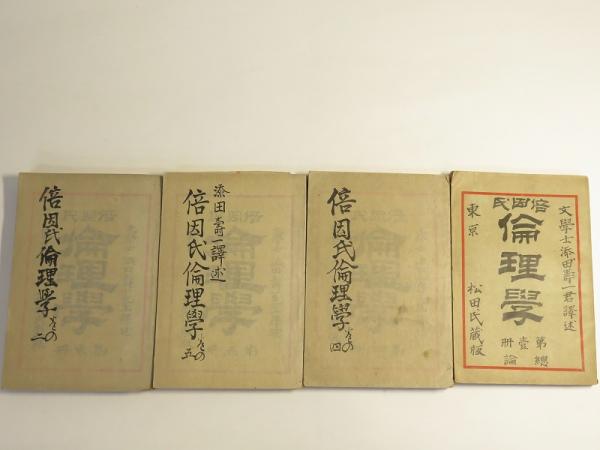 文學士添田壽一君譯述
倍因氏
倫理學
第壹冊
總論
東京
松田氏藏版
倍因氏倫理學 その四
添田壽一譯述
倍因氏倫理學 その五
倍因氏倫理學 その二